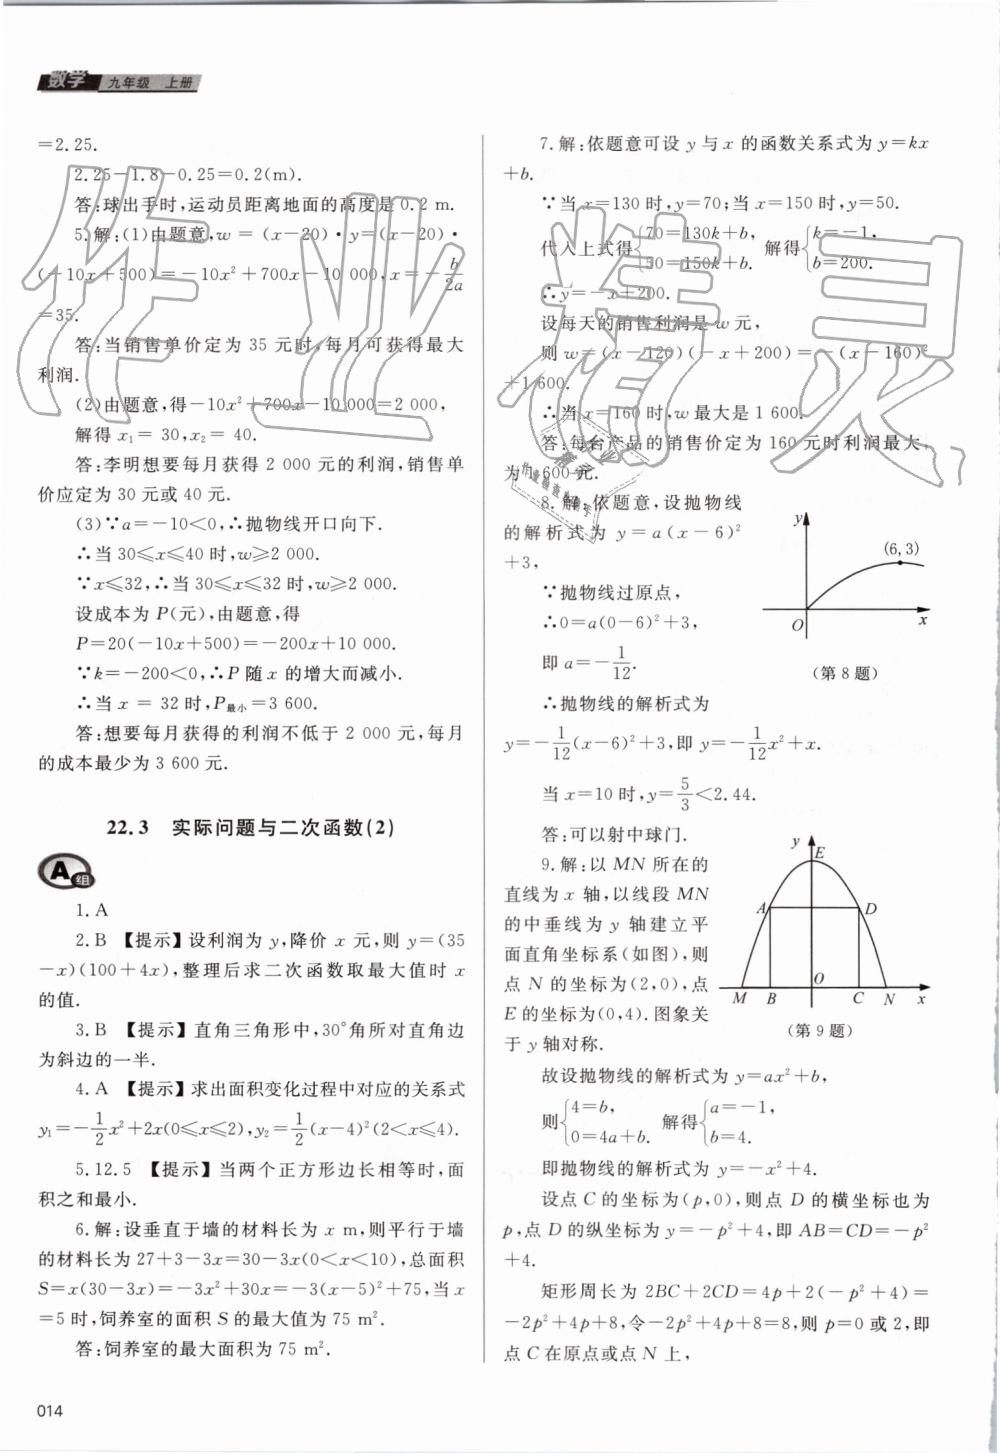 数学 九年级 上册
=2.25.
2.25-1.8-0.25=0.2(m).
答:球出手时,运动员距离地面的高度是 0.2 m.
5.解:(1)由题意,w=(x-20)·y=(x-20)·
(-10x+500)=-10x²+700x-10 000,x=-b/2a
=35.
答:当销售单价定为 35 元时,每月可获得最大
利润.
(2)由题意,得-10x²+700x-10 000=2 000,
解得 x₁=30,x₂=40.
答:李明想要每月获得 2 000 元的利润,销售单
价应定为 30 元或 40 元.
(3)∵a=-10<0,∴抛物线开口向下.
∴当 30≤x≤40 时,w≥2 000.
∵x≤32,∴当 30≤x≤32 时,w≥2 000.
设成本为 P(元),由题意,得
P=20(-10x+500)=-200x+10 000.
∵k=-200<0,∴P 随 x 的增大而减小.
∴当 x=32 时,P最小=3 600.
答:想要每月获得的利润不低于 2 000 元,每月
的成本最少为 3 600 元.
22.3 实际问题与二次函数(2)
A组
1.A
2.B 【提示】设利润为 y,降价 x 元,则 y=(35
-x)(100+4x),整理后求二次函数取最大值时 x
的值.
3.B 【提示】直角三角形中,30°角所对直角边
为斜边的一半.
4.A 【提示】求出面积变化过程中对应的关系式
y₁=-1/2x²+2x(0≤x≤2),y₂=1/2(x-4)²(2<x≤4).
5.12.5 【提示】当两个正方形边长相等时,面
积之和最小.
6.解:设垂直于墙的材料长为 x m,则平行于墙
的材料长为 27+3-3x=30-3x(0<x<10),总面积
S=x(30-3x)=-3x²+30x=-3(x-5)²+75,当 x
=5 时,饲养室的面积 S 的最大值为 75 m².
答:饲养室的最大面积为 75 m².
014
7.解:依题意可设 y 与 x 的函数关系式为 y=kx
+b.
∵当 x=130 时,y=70;当 x=150 时,y=50.
代入上式得{70=130k+b, 50=150k+b. 解得{k=-1, b=200.
∴y=-x+200.
设每天的销售利润是 w 元,
则 w=(x-120)(-x+200)=-(x-160)²
+1 600.
∴当 x=160 时,w 最大是 1 600.
答:每台产品的销售价定为 160 元时利润最大,
为 1 600 元.
8.解:依题意,设抛物线
的解析式为 y=a(x-6)²
+3,
∵抛物线过原点,
∴0=a(0-6)²+3,
即 a=-1/12.
y
(6,3)
O
x
(第 8 题)
∴抛物线的解析式为
y=-1/12(x-6)²+3,即 y=-1/12x²+x.
当 x=10 时,y=5/3<2.44.
答:可以射中球门.
9.解:以 MN 所在的
直线为 x 轴,以线段 MN
的中垂线为 y 轴建立平
面直角坐标系(如图),则
点 N 的坐标为(2,0),点
E 的坐标为(0,4).图象关
于 y 轴对称.
y
E
A D
O
M B C N x
(第 9 题)
故设抛物线的解析式为 y=ax²+b,
则{4=b, 0=4a+b. 解得{a=-1, b=4.
即抛物线的解析式为 y=-x²+4.
设点 C 的坐标为(p,0),则点 D 的横坐标也为
p,点 D 的纵坐标为 y=-p²+4,即 AB=CD=-p²
+4.
矩形周长为 2BC+2CD=4p+2(-p²+4)=
-2p²+4p+8,令-2p²+4p+8=8,则 p=0 或 2,即
点 C 在原点或点 N 上,
作业精灵